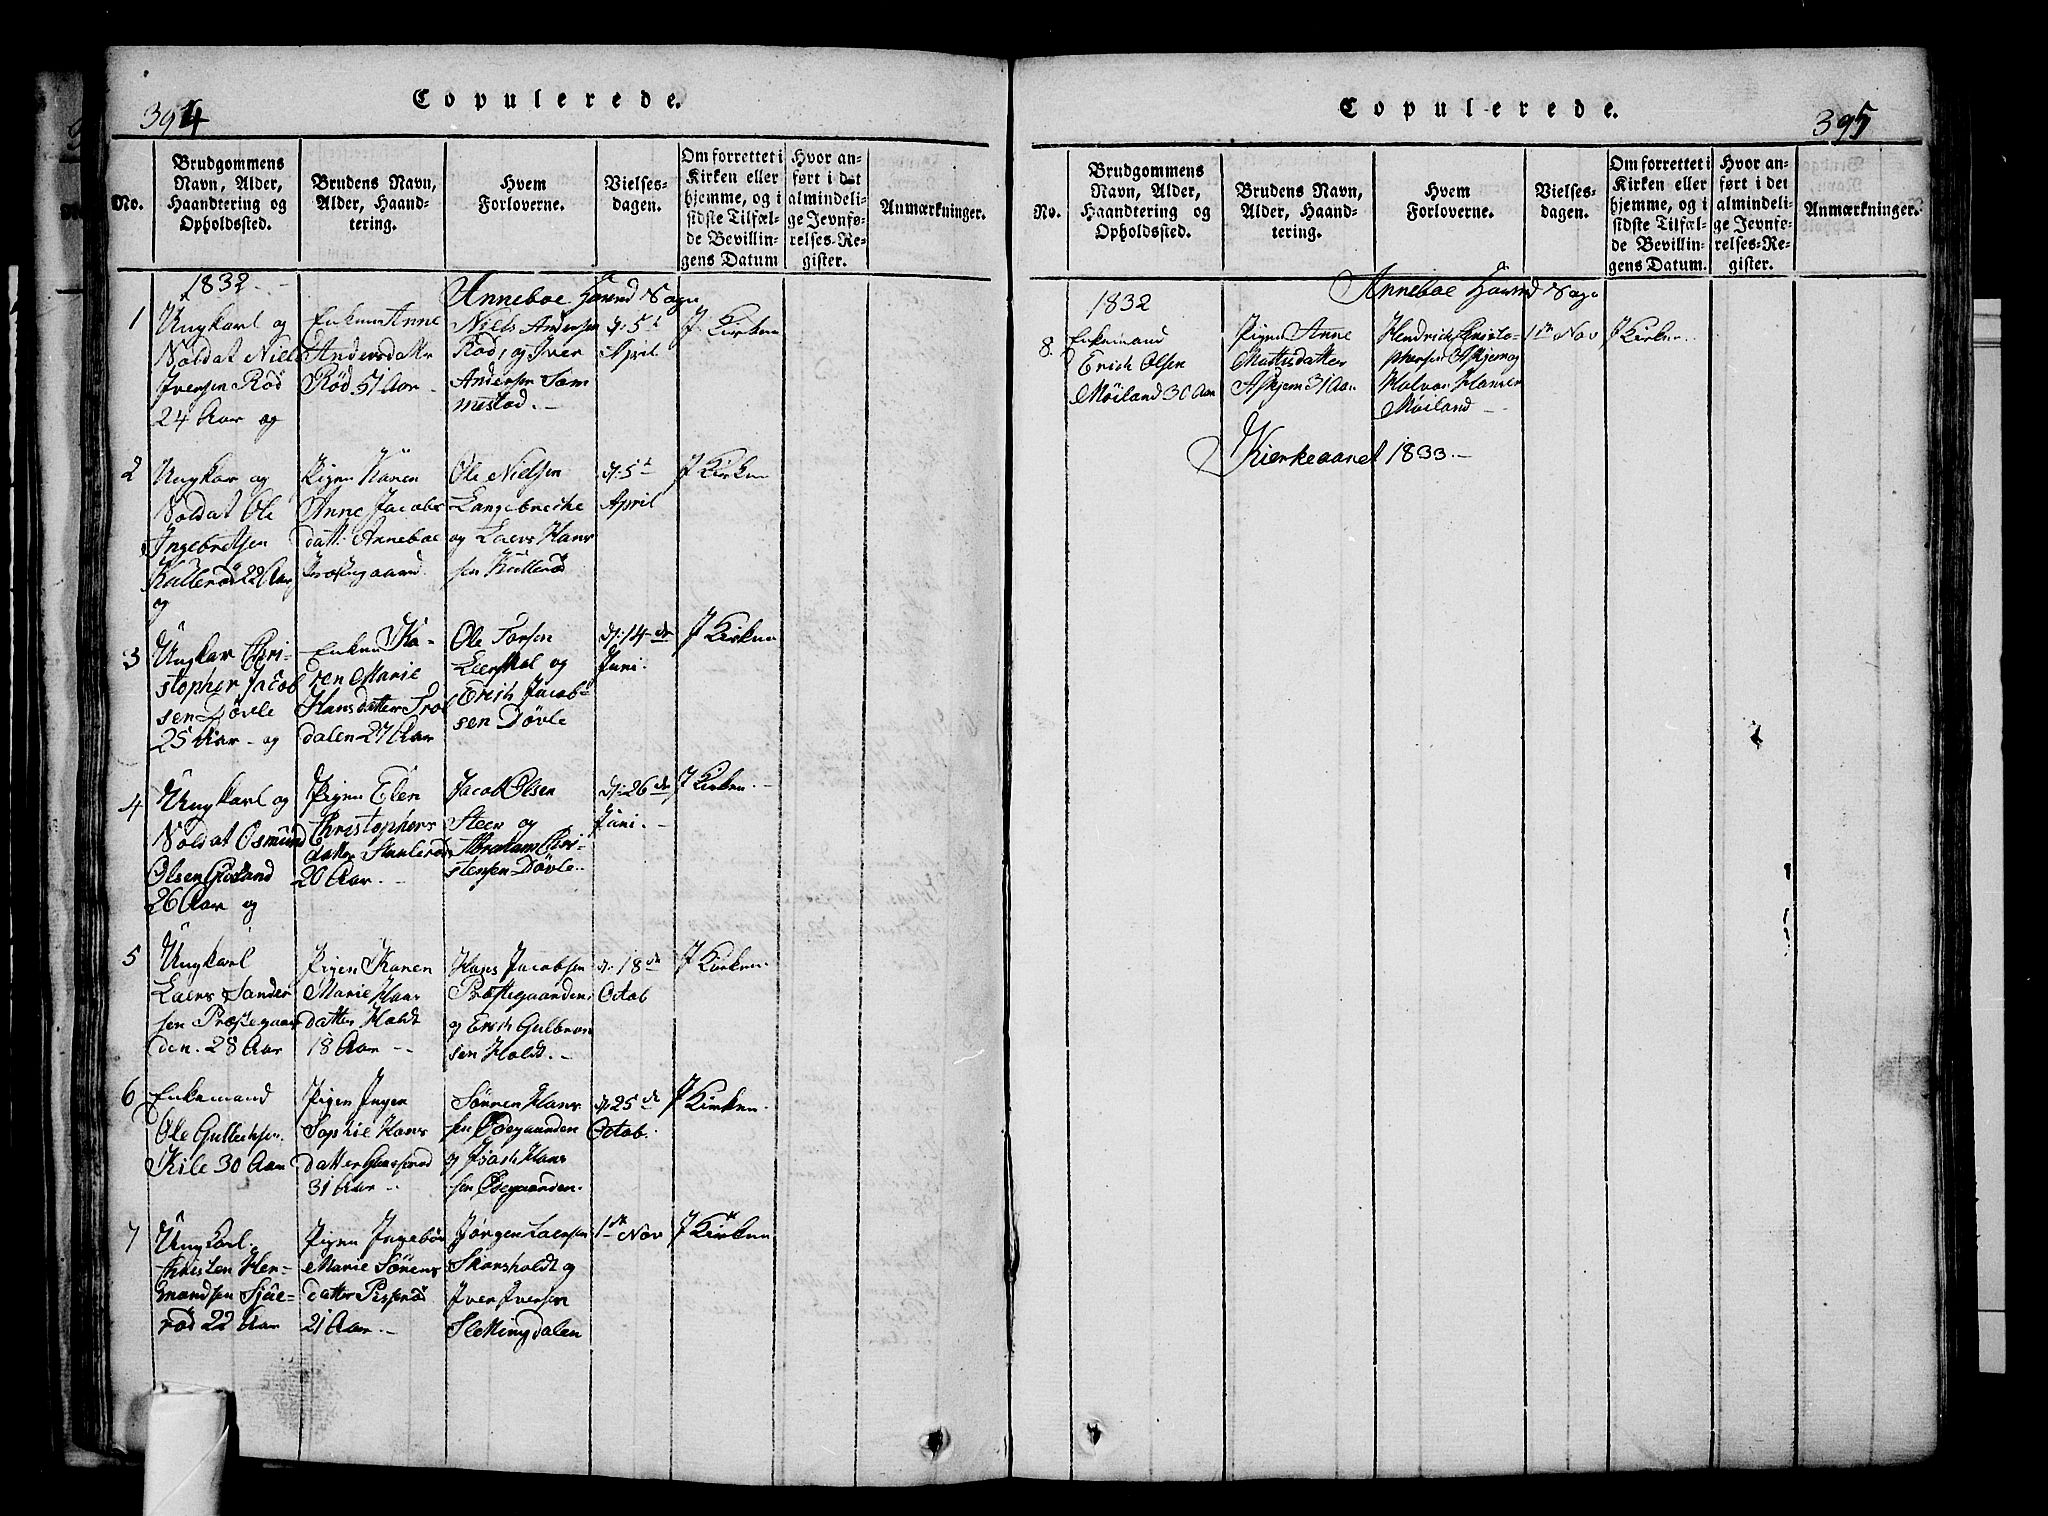 394
Copulerede.
No.
Brudgommens
Navn, Alder,
Haandtering og
Opholdssted.
Brudens Navn,
Alder, Haand-
tering.
Hvem
Forloverne.
Vielses-
dagen.
Om forrettet i
Kirken eller
hjemme, og i
sidste Tilfæl-
de Bevillin-
gens Datum
Hvor an-
ført i det
almindeli-
ge Jevnfø-
relses-Re-
gister.
Anmærkninger.
1832
Anneboe Sogn
1
Ungkarl og
Soldat Niels
Iversen Röd
24 Aar og
Enken Anne
Andersdattr
Röd 51 Aar
Niels Andersen
Röd, og Iver
Andersen Som
mestad.
d: 5t
April
I Kirken
2
Ungkar og
Soldat Ole
Ingebretsen
Kulleröd 22 Aar
og
Pigen Karen
Anne Jacobs
datt: Anneboe
Præstegaard.
Ole Nielsen
Langebrecke
og Laers Hans
sen Kulleröd
d: 5t
April
I Kirken
3
Ungkar Chri-
stopher Jacob
sen Dövle
25 Aar og
Enken Ka-
ren Marie
Hansdatter Trol
dalen 27 Aar
Ole Torsen
Laerskal og
Erich Jacob
sen Dövle
d: 14de
Juni.
I Kirken
4
Ungkarl og
Soldat Osmund
Olsen
26 Aar og
Pigen Elen
Christophers
datter
20 Aar.
Jacob Olsen
Steen og
Abraham Chri-
stensen Dövle.
d: 26de
Juni.
I Kirken.
5
Ungkarl
Laers Sander
sen Præstegaar
den. 28 Aar
Pigen Karen
Marie Hans
datter Holdt
18 Aar
Hans Jacobsen
Præstegaarden
og Erich Gulbran
sen Holdt.
d: 18de
Octob
I Kirken.
6
Enkemand
Ole Gullichsen
Kile 30 Aar
Pigen Inger
Sophie Hans
datter
31 Aar
Sörren Hans
sen Ödegaarden
og Isach Hans
sen Ödegaarden.
d: 25de
Octob.
I Kirken.
7
Ungkarl
Christen Her-
mandsen Sjue-
röd 22 Aar
Pigen Ingebör
Marie Sörens
datter
21 Aar.
Jörgen Laersen
Skorsholdt og
Iver Iversen
Slettingdalen
1ste Nov
I Kirken
Copulerede.
395
No.
Brudgommens
Navn, Alder,
Haandtering og
Opholdssted.
Brudens Navn,
Alder, Haand-
tering.
Hvem
Forloverne.
Vielses-
dagen.
Om forrettet i
Kirken eller
hjemme, og i
sidste Tilfæl-
de Bevillin-
gens Datum.
Hvor an-
ført i det
almindeli-
ge Jevnfø-
relses-Re-
gister.
Anmærkninger.
1832
Anneboe Sogn
8.
Enkemand
Erich Olsen
Möiland 30 Aar
Pigen Anne
Mattisdatter
Askjem 31 Aar
Hendrich Christo-
phersen Askjem og
Halvor Hansen
Möiland
1ste Nov
I Kirken.
Kierkeaaret 1833.